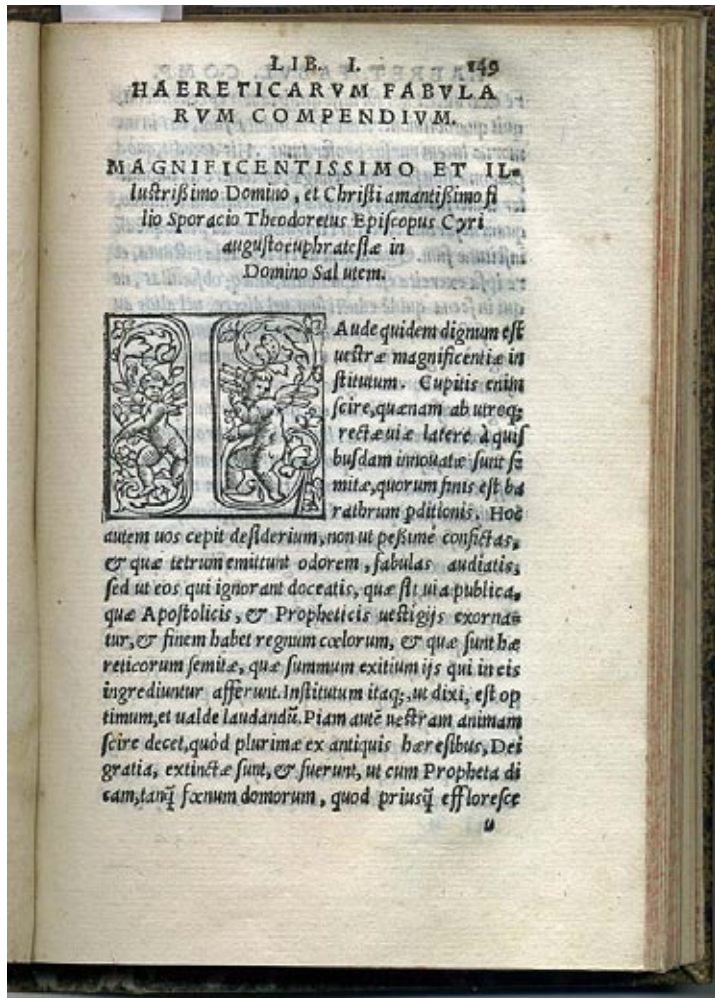 LIB. I. 149
HAERETICARVM FABVLA
RVM COMPENDIVM.
MAGNIFICENTISSIMO ET IL-
luſtrißimo Domino, et Chriſti amantißimo fi
lio Sporacio Theodoretus Epiſcopus Cyri
auguſtoeuphrateſiæ in
Domino Salutem.
LAude quidem dignum eſt
ueſtræ magnificentiæ in
ſtitutum. Cupitis enim
ſcire, quænam ab utroq;
rectæ uiæ latere à quiſ
buſdam innouatæ ſunt ſe
mitæ, quorum finis eſt ba
rathrum pditionis. Hoc
autem uos cepit deſiderium, non ut peßimè confictas,
& quæ tetrum emittunt odorem, fabulas audiatis,
ſed ut eos qui ignorant doceatis, quæ ſit uia publica,
quæ Apoſtolicis, & Propheticis ueſtigijs exorna-
tur, & finem habet regnum cœlorum, & quæ ſunt hæ
reticorum ſemitæ, quæ ſummum exitium ijs qui in eis
ingrediuntur afferunt. Inſtitutum itaq;, ut dixi, eſt op
timum, et ualde laudandū. Piam autē ueſtram animam
ſcire decet, quòd plurimæ ex antiquis hæreſibus, Dei
gratia, extinctæ ſunt, & fuerunt, ut cum Propheta di
cam, tanq̃ fœnum domorum, quod priuſq̃ effloreſce
u